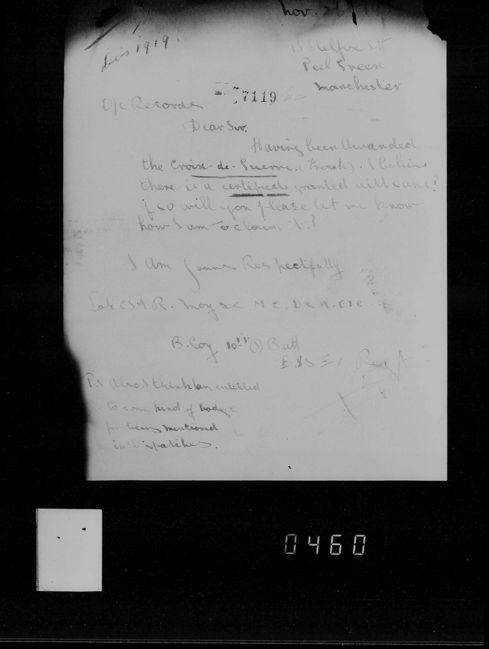 Nov. 26
Lis 1919.
Peel Green
Manchester
7119
O/c Records
Dear Sir,
Having been Awarded
the Croix-de-Guerre. (French). I believe
there is a certificate granted with same?
if so will you please let me know
how I am to claim it?
I Am Yours Respectfully
R. M.C. D.C.M. etc
B. Coy 10th (S) Batt
Ps Also I think I am entitled
to some kind of badge
for being mentioned
in Dispatches.
0460